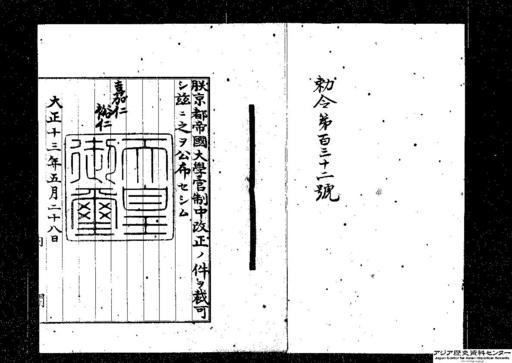 勅令第百三十二號
朕京都帝國大學官制中改正ノ件ヲ裁可
シ茲ニ之ヲ公布セシム
嘉仁
裕仁
天皇
御璽
大正十三年五月二十八日
内閣
アジア歴史資料センター
Japan Center for Asian Historical Records